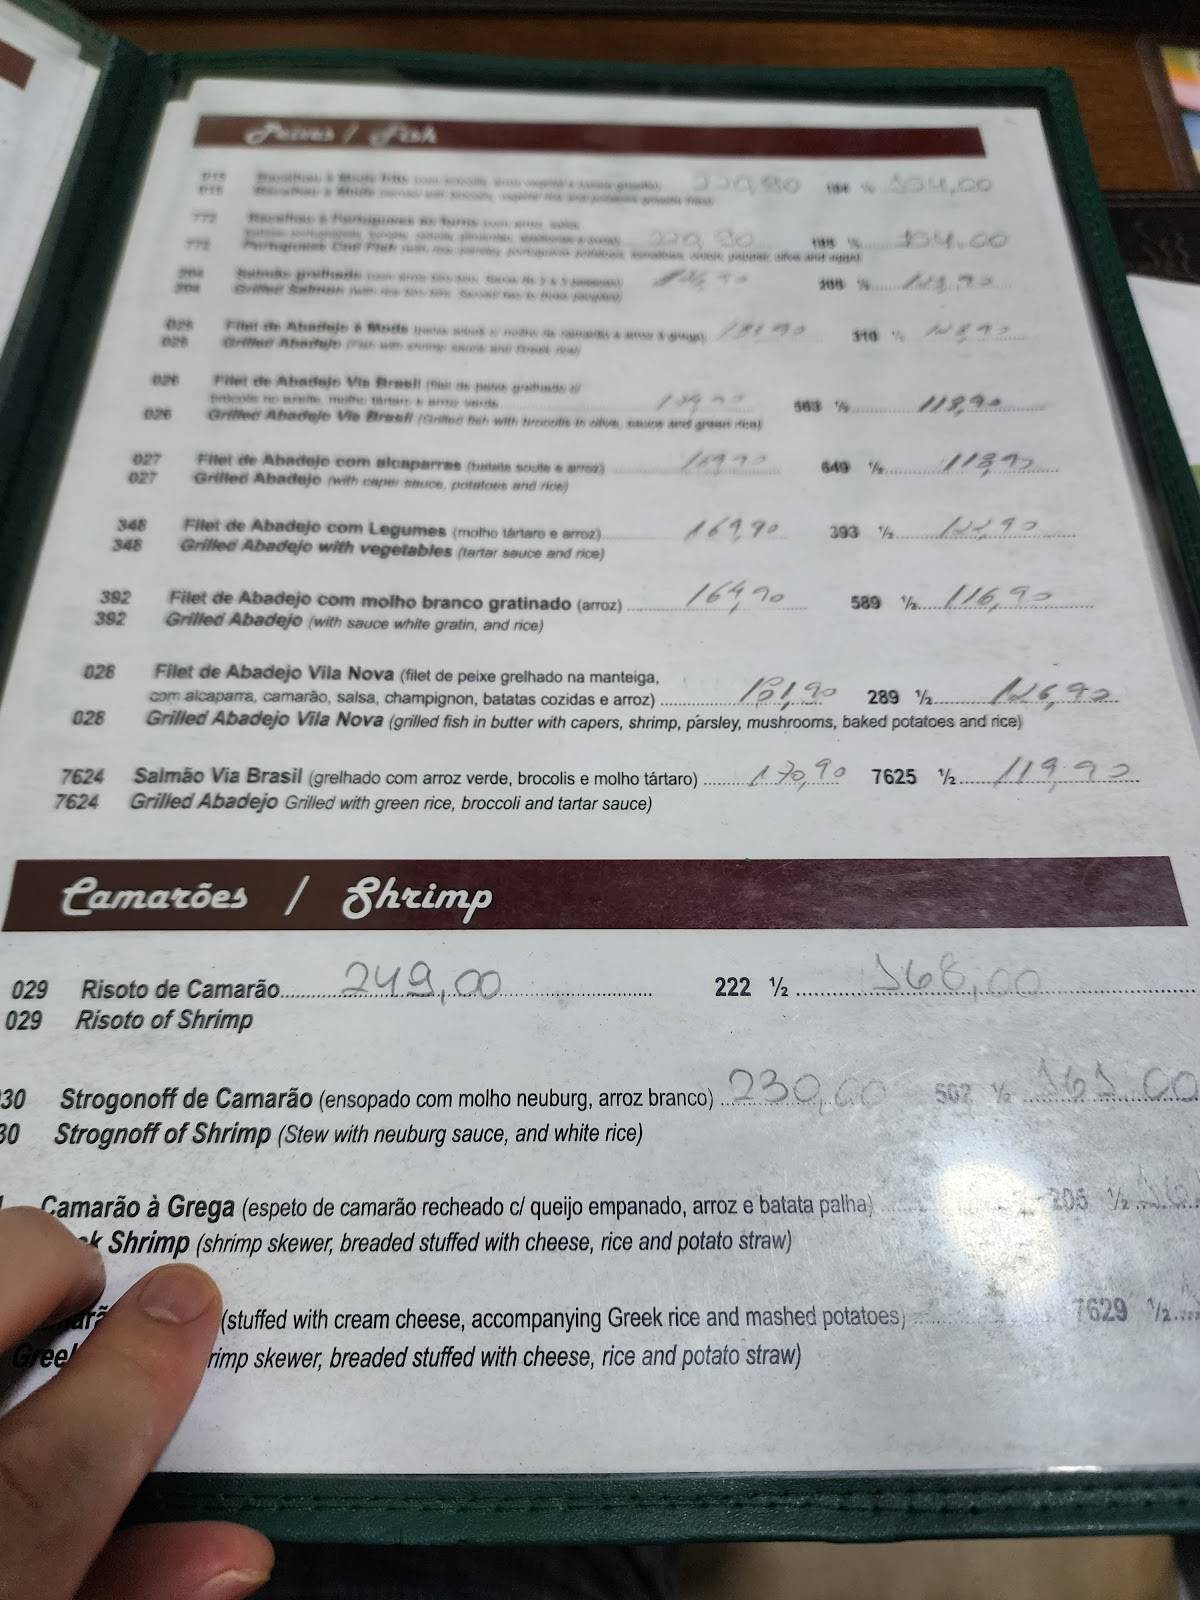 Peixes / Fish
772 Bacalhau à Portuguesa ao forno
772 Portuguese Cod Fish
204 Salmão grelhado
204 Grilled Salmon
025 Filet de Abadejo à Moda 310 ½
025 Grilled Abadejo (Fish with shrimp sauce and Greek rice)
026 Filet de Abadejo Via Brasil (filet de peixe grelhado c/
brócolis no azeite, molho tártaro e arroz verde 563 ½ 118,90
026 Grilled Abadejo Via Brasil (Grilled fish with broccolis in olive, sauce and green rice)
027 Filet de Abadejo com alcaparras (batata soute e arroz) 169,90 649 ½ 118,90
027 Grilled Abadejo (with caper sauce, potatoes and rice)
348 Filet de Abadejo com Legumes (molho tártaro e arroz) 169,90 393 ½ 122,90
348 Grilled Abadejo with vegetables (tartar sauce and rice)
392 Filet de Abadejo com molho branco gratinado (arroz) 164,90 589 ½ 116,90
392 Grilled Abadejo (with sauce white gratin, and rice)
028 Filet de Abadejo Vila Nova (filet de peixe grelhado na manteiga,
com alcaparra, camarão, salsa, champignon, batatas cozidas e arroz) 181,90 289 ½ 126,90
028 Grilled Abadejo Vila Nova (grilled fish in butter with capers, shrimp, parsley, mushrooms, baked potatoes and rice)
7624 Salmão Via Brasil (grelhado com arroz verde, brocolis e molho tártaro) 170,90 7625 ½ 119,90
7624 Grilled Abadejo Grilled with green rice, broccoli and tartar sauce)
Camarões / Shrimp
029 Risoto de Camarão 249,00 222 ½ 168,00
029 Risoto of Shrimp
30 Strogonoff de Camarão (ensopado com molho neuburg, arroz branco) 230,00 502 ½ 161,00
30 Strognoff of Shrimp (Stew with neuburg sauce, and white rice)
Camarão à Grega (espeto de camarão recheado c/ queijo empanado, arroz e batata palha) 205 ½
k Shrimp (shrimp skewer, breaded stuffed with cheese, rice and potato straw)
(stuffed with cream cheese, accompanying Greek rice and mashed potatoes) 7629 ½
Greek rimp skewer, breaded stuffed with cheese, rice and potato straw)